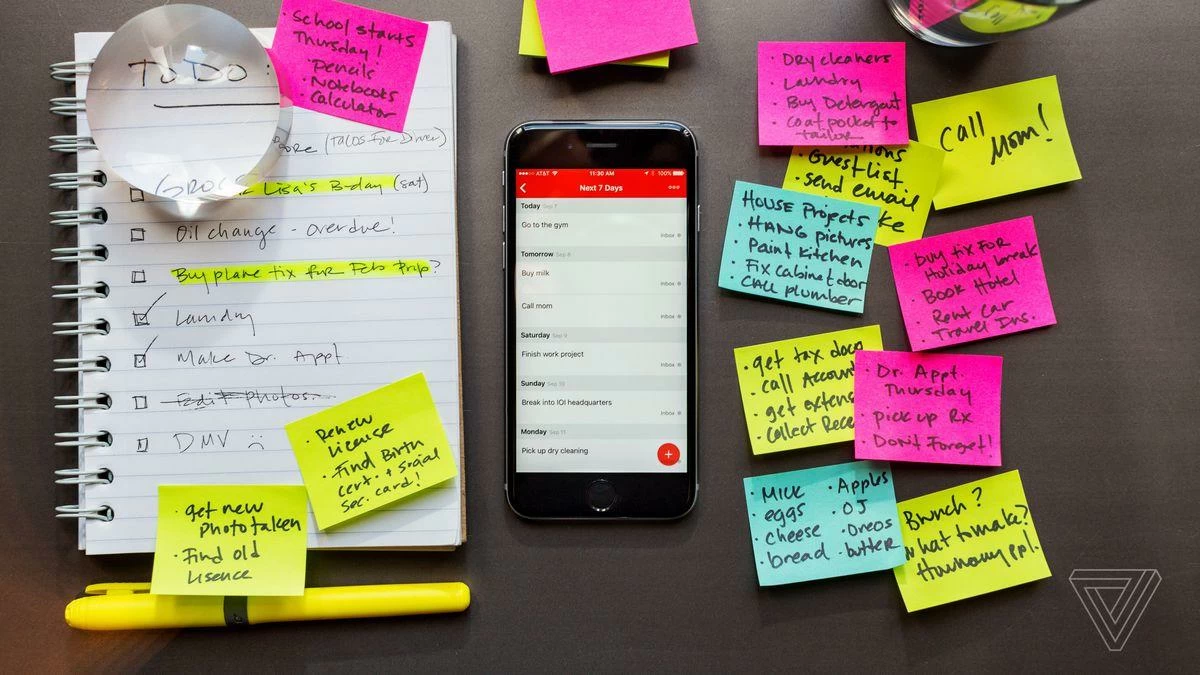 TO DO:
(TACOS FOR Dinner)
GROC
Lisa's B-day (sat)
Oil change - overdue!
Buy plane tix for Feb trip?
Laundry
Make Dr. Appt
Edit photos
DMV ☹
· School starts
Thursday!
· Pencils
· Notebooks
· Calculator
· Renew
License
· Find Birth
cert. + Social
Sec. card!
· get new
Photo taken
· Find old
Lisence
AT&T 11:30 AM 100%
Next 7 Days
Today Sep 7
Go to the gym
Inbox
Tomorrow Sep 8
Buy milk
Inbox
Call mom
Inbox
Saturday Sep 9
Finish work project
Inbox
Sunday Sep 10
Break into IOI headquarters
Inbox
Monday Sep 11
Pick up dry cleaning
+
· Dry cleaners
· Laundry
· Buy Detergent
· Coat pocket to
tailor
Call
Mom!
· Guest list
· send email
HOUSE Projects
· HANG pictures
· Paint kitchen
· Fix cabinet door
· CALL plumber
· buy tix FOR
Holiday break
· Book Hotel
· Rent Car
· Travel Ins.
· get tax docs
· call Account
· get extens
· Collect Rece
· Dr. Appt.
Thursday
· pick up Rx
· DON'T Forget!
· MILK
· eggs
· cheese
· bread
· Apples
· OJ
· Oreos
· butter
Brunch?
what to make?